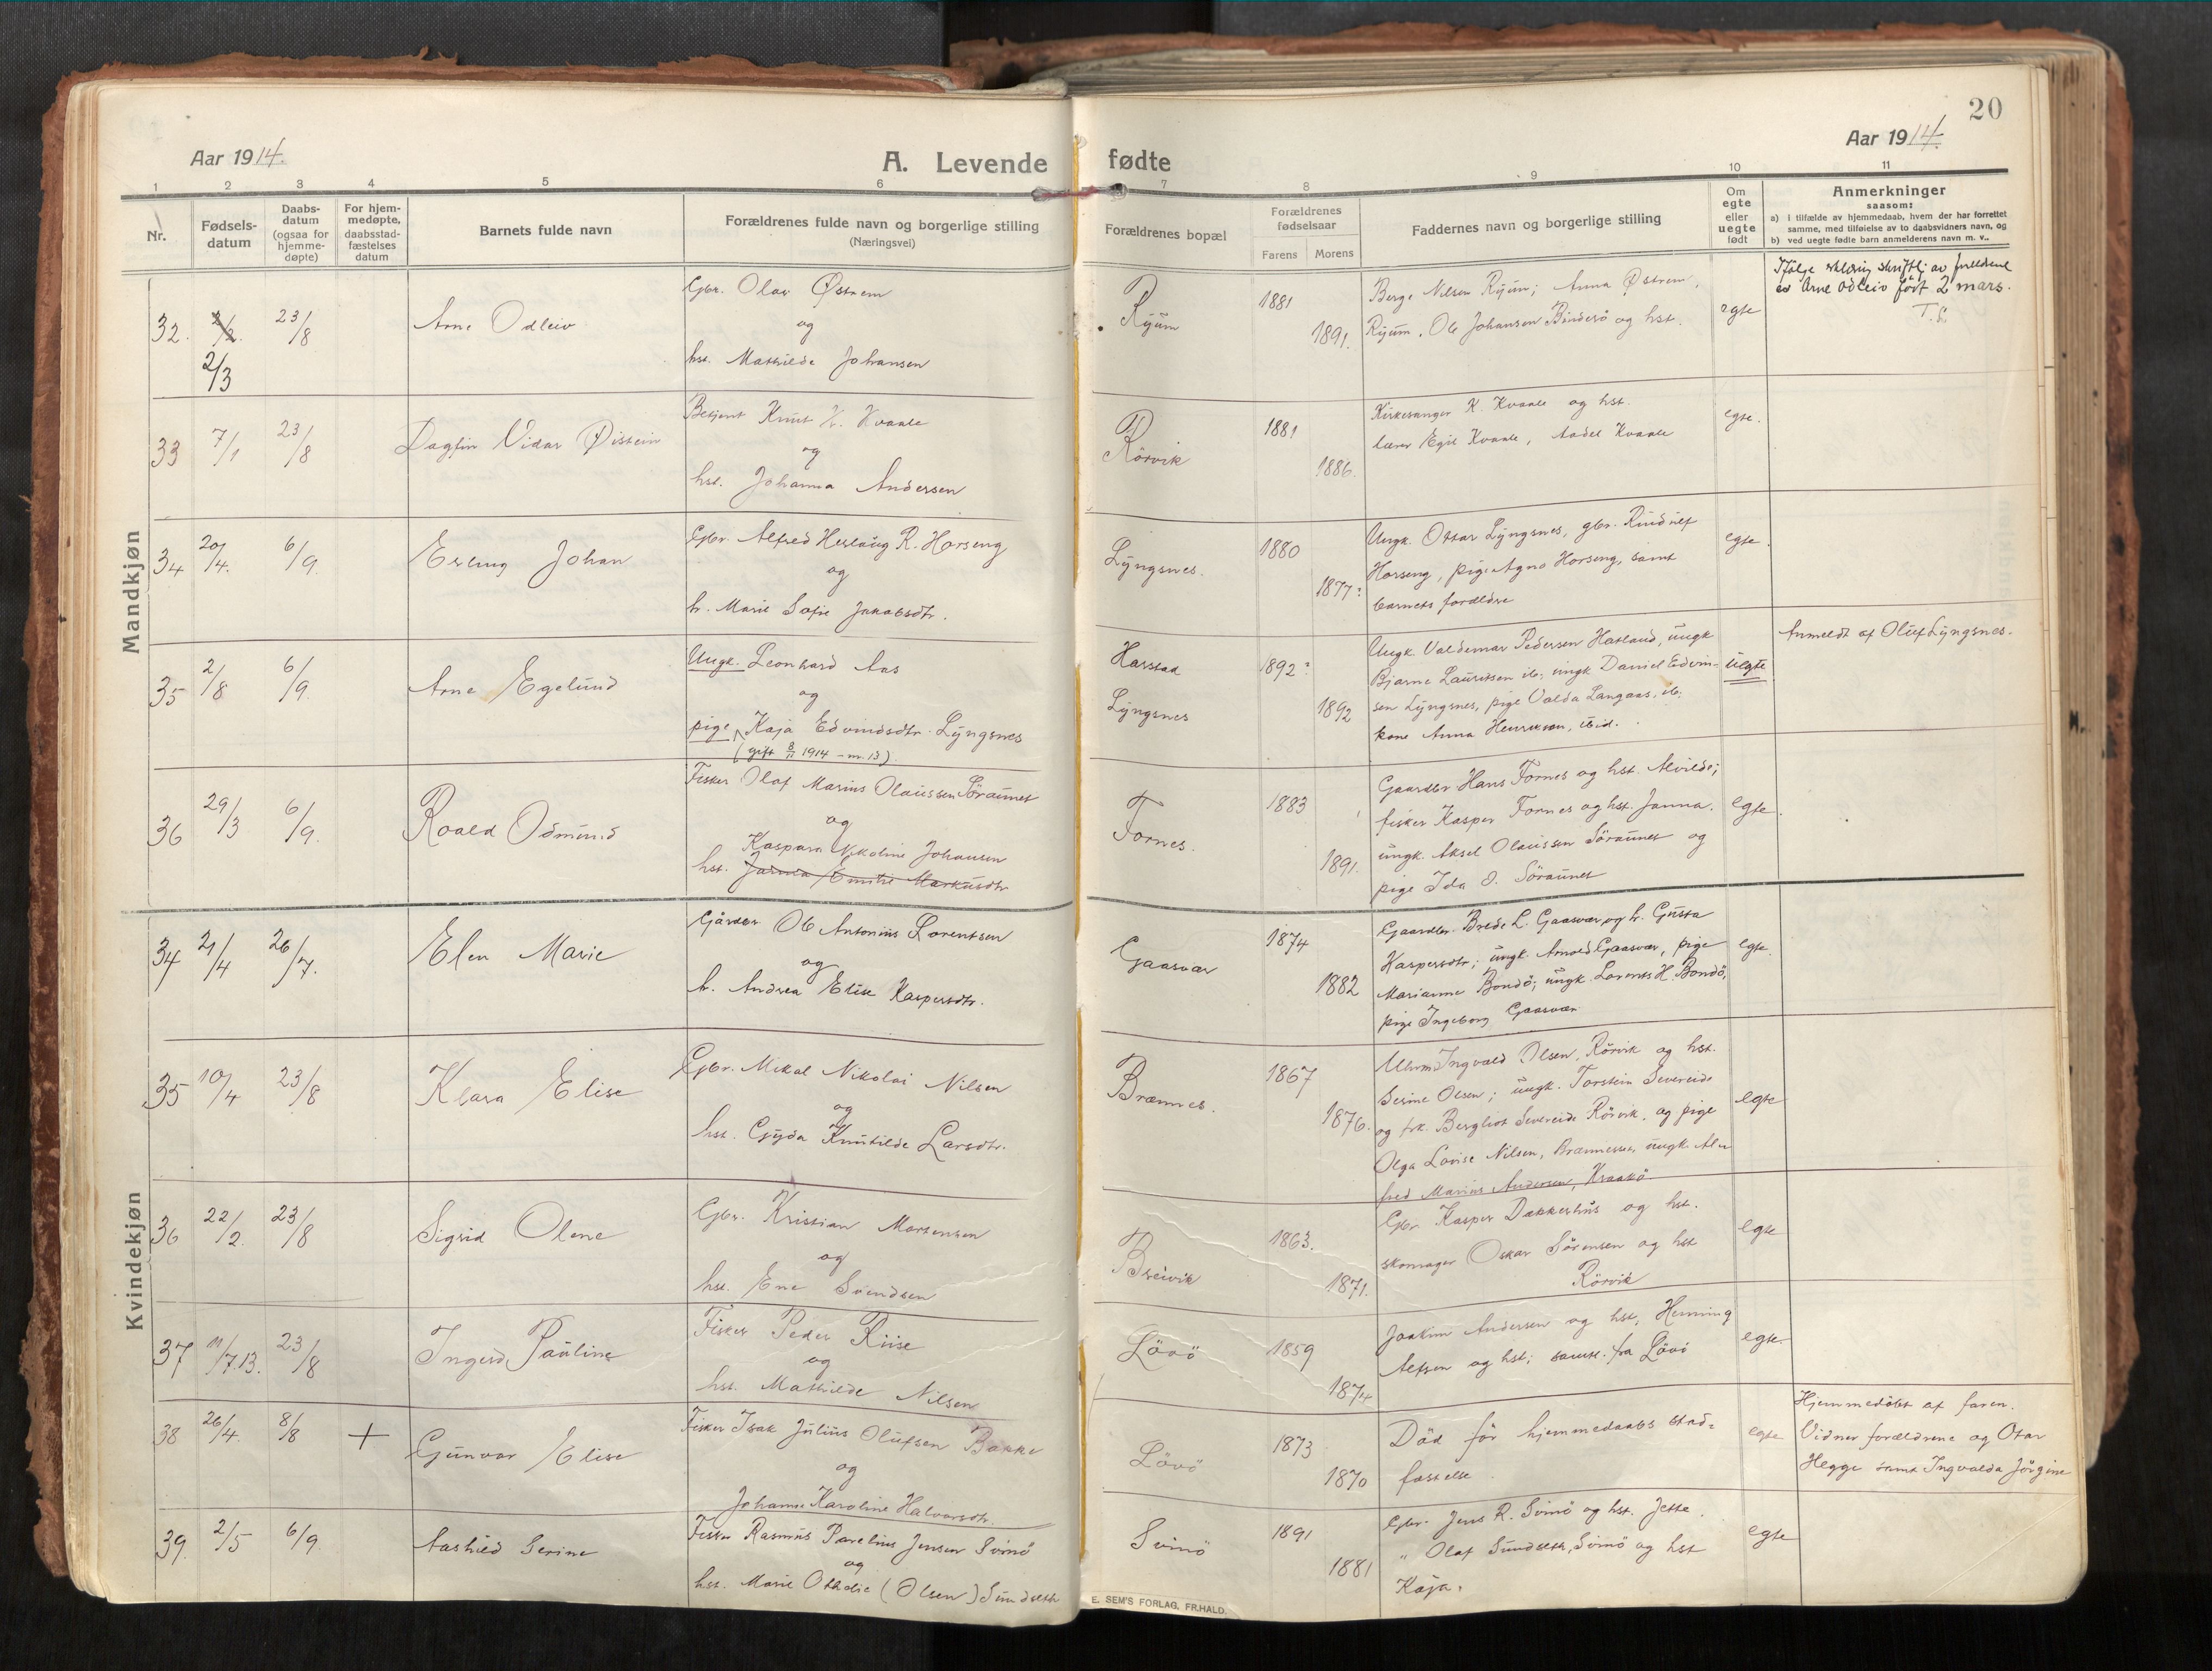 20
Aar 1914.
A. Levende fødte
Aar 1914.
1 2 3 4 5 6 7 8 9 10 11
Nr.
Fødsels-
datum
Daabs-
datum
(ogsaa for
hjemme-
døpte)
For hjem-
medøpte,
daabsstad-
fæstelses
datum
Barnets fulde navn
Forældrenes fulde navn og borgerlige stilling
(Næringsvei)
Forældrenes bopæl
Forældrenes
fødselsaar
Farens Morens
Faddernes navn og borgerlige stilling
Om
egte
eller
uegte
født
Anmerkninger
saasom:
a) i tilfælde av hjemmedaab, hvem der har forrettet
samme, med tilføielse av to daabsvidners navn, og
b) ved uegte fødte barn anmelderens navn m. v..
Mandkjøn
32. 2/3 23/8 Arne Odleiv
Gbr. Olav Østrem
og
hst. Mathilde Johansen
Ryum 1881 1891.
Berge Nilsen Ryum; Anna Østrem,
Ryum. Ole Johansen Binderø og hst.
egte
Ifølge erklæring skriftlig av forældrene
er Arne Odleiv født 2 mars.
33 7/1 23/8 Dagfin Vidar Øistein
Betjent Knut K. Kvaale
og
hst. Johanna Andersen
Rörvik 1881 1886.
Kirkesanger K. Kvaale og hst.
lærer Egil Kvaale, Aadel Kvaale
egte.
34 20/4. 6/9. Erling Johan
Gbr. Alfred Herlaug R. Horseng
og
h. Marie Sofie Jakobsdtr.
Lyngsnes. 1880 1877?
Ungk. Ottar Lyngsnes, gbr. Rindulf
Horseng, pige Agna Horseng, samt
barnets forældre
egte.
35 2/8 6/9. Arne Egelund
Ungk. Leonhard Aas
og
pige Kaja Edvindsdtr. Lyngsnes
(gift 8/11 1914 – nr. 13).
Harstad
Lyngsnes
1892? 1892
Ungk. Valdemar Pedersen Hatland, ungk
Bjarne Lauritsen ib; ungk Daniel Edvin-
sen Lyngsnes, pige Valda Langaas, ib.
kone Anna Henriksen, ibid.
uegte
Anmeldt af Oluf Lyngsnes.
36 29/3 6/9. Roald Odmund
Fisker Olaf Marius Olaussen Söraunet
og
Kaspara Nikoline Johansen
hst. Janna Emilie Markusdtr
Fornes. 1883 1891.
Gaardbr Hans Fornes og hst. Alvilde;
fisker Kasper Fornes og hst. Janna.
ungk. Aksel Olaussen Söraunet og
pige Ida O. Söraunet
egte.
Kvindekjøn
34 21/4 26/7. Elen Marie
Gårdbr Ole Antonius Lorentsen
og
h. Andrea Elise Kaspersdtr.
Gaasvær 1874 1882
Gaardbr. Brede L. Gaasvær og h. Gusta
Kaspersdtr; ungk. Arnold Gaasvær, pige
Marianne Bondö; ungk. Lorents H. Bondö,
pige Ingeborg Gaasvær
egte.
35 10/4 23/8 Klara Elise
Gbr. Mikal Nikolai Nilsen
og
hst. Gyda Knutilde Larsdtr.
Brannes. 1867 1876.
Uhrm Ingvald Olsen, Rörvik og hst.
Serine Olsen; ungk. Torstein Severeide
og frk. Bergliot Severeide Rörvik, og pige
Olga Lovise Nilsen, Brannesset, ungk. Al-
fred Marius Andersen, Kraakö.
egte
36 22/2. 23/8 Sigrid Olene
Gbr. Kristian Mortensen
og
hst. Ene Svendsen
Breivik 1863. 1871.
Gbr. Kasper Dekkerhus og hst.
skomager Oskar Sörensen og hst
Rörvik
egte
37 11/7.13. 23/8 Ingerd Pauline
Fisker Peder Riise
og
hst. Mathilde Nilsen
Lövö 1859 1874
Joakim Andersen og hst, Henning
Alfsen og hst; samtl. fra Lövö
egte.
38 26/4. 8/8 + Gunvor Elise
Fisker Isak Julius Olufsen Bakke
og
Johanne Karoline Halvorsdtr.
Lövö 1873 1870
Död för hjemmedaabs stad-
fæstelse
egte
Hjemmedöbt af faren.
Vidner forældrene og Otar
Hegge samt Ingvalda Jörgine
39. 2/5 6/9. Aashild Serine
Fisker Rasmus Parelius Jensen Svinö
og
hst. Marie Othelie (Olsen) Sundseth
Svinö 1891 1881
Gbr. Jens R. Svinö og hst. Jette.
" Olaf Sundseth, Svinö og hst
Kaja.
egte
E. SEM'S FORLAG, FR.HALD.